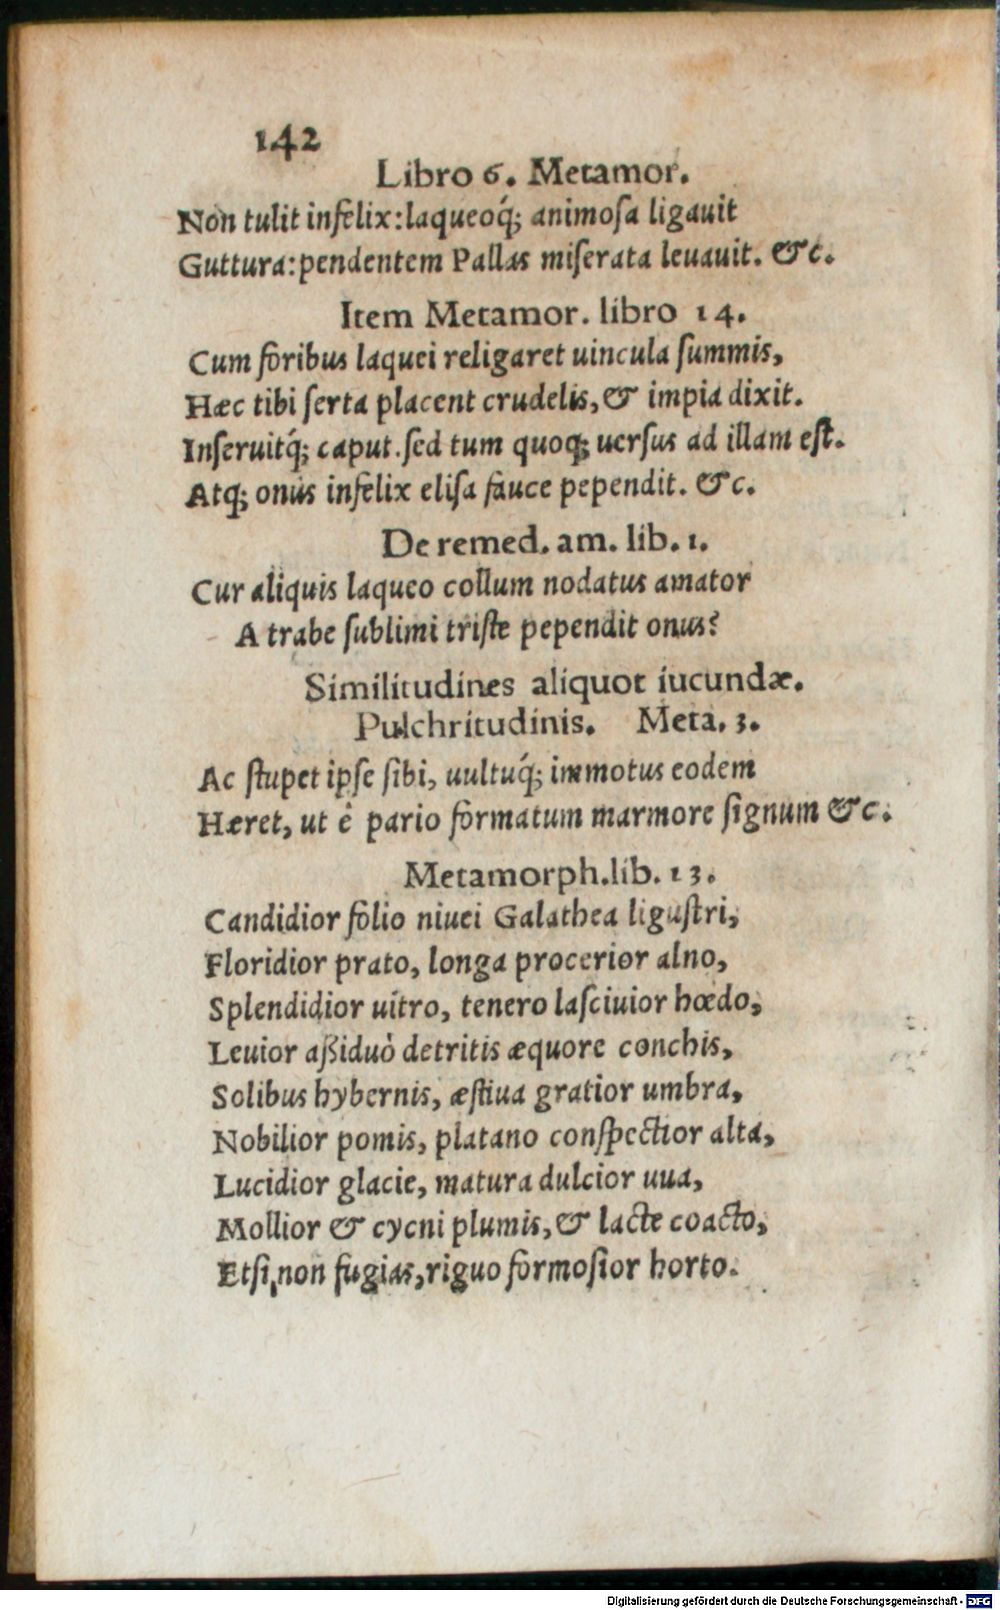 142
Libro 6. Metamor.
Non tulit infelix: laqueoq́; animosa ligauit
Guttura: pendentem Pallas miserata leuauit. &c.
Item Metamor. libro 14.
Cum foribus laquei religaret uincula summis,
Hæc tibi serta placent crudelis, & impia dixit.
Inseruitq́; caput. sed tum quoq; uersus ad illam est.
Atq; onus infelix elisa fauce pependit. &c.
De remed. am. lib. 1.
Cur aliquis laqueo collum nodatus amator
A trabe sublimi triste pependit onus?
Similitudines aliquot iucundæ.
Pulchritudinis. Meta. 3.
Ac stupet ipse sibi, uultuq́; immotus eodem
Hæret, ut è pario formatum marmore signum &c.
Metamorph. lib. 13.
Candidior folio niuei Galathea ligustri,
Floridior prato, longa procerior alno,
Splendidior uitro, tenero lasciuior hœdo,
Leuior aßiduò detritis æquore conchis,
Solibus hybernis, æstiua gratior umbra,
Nobilior pomis, platano conspectior alta,
Lucidior glacie, matura dulcior uua,
Mollior & cycni plumis, & lacte coacto,
Etsi, non fugias, riguo formosior horto.
Digitalisierung gefördert durch die Deutsche Forschungsgemeinschaft - DFG